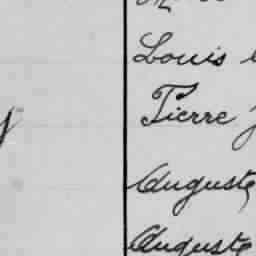 Louis
Pierre
Auguste
Auguste